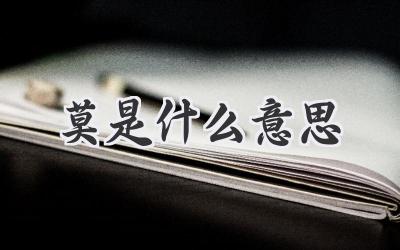 莫是什么意思